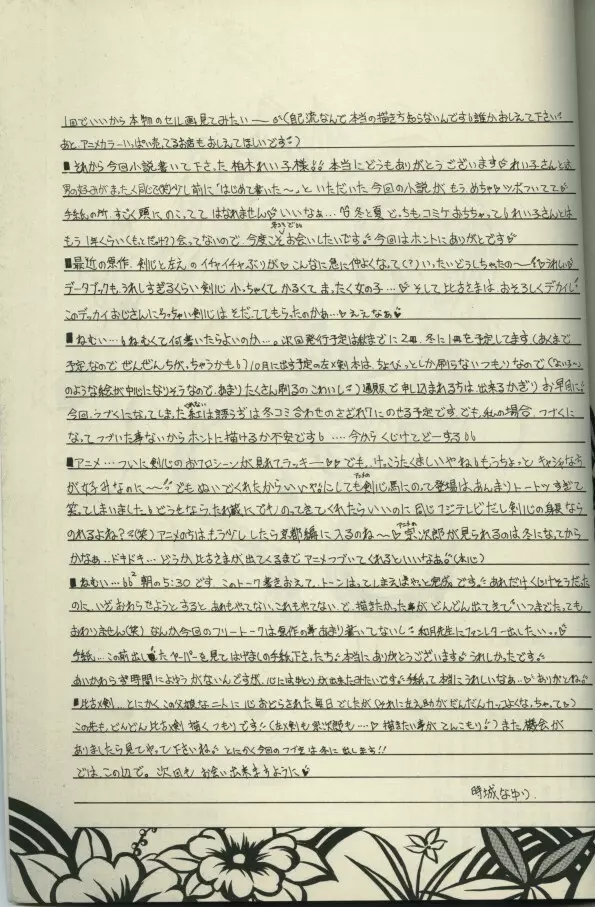 1回でいいから本物のセル画見てみたい──（自己流なんで本当の描き方知らないんです 誰かおしえて下さい
あと、アニメカラーいっぱい売ってるお店もおしえてほしいです）
■それから今回小説書いて下さった柏木れい子様 本当にどうもありがとうございます れい子さんとは
男の好みがまったく同じで 少し前に「はじめて書いた〜。」といただいた今回の小説がもうめちゃツボついてて
手紙の所、すごく頭にのこってて はなれません いいなぁ… 冬と夏どっちもコミケおちちゃって れい子さんとは
もう1年くらい（もっとだっけ？）会ってないので、今度こそお会いしたいです 今回はホントにありがとです
■最近の原作、剣心と左えのイチャイチャぶりが こんなに急に仲よくなって（？）いったいどうしちゃったの〜 うれしい
データブックも、うれしすぎるくらい剣心小っちゃくて かるくて まったく女の子… そして比古さまは おそろしくデカイし
このデッカイおじさんにちっちゃい剣心は そだててもらったのかぁ…ええなぁ
■ねむい… ねむくて何書いたらよいのか…。次回発行予定は秋までに2冊、冬に1冊を予定してます（あくまで
予定なので ぜんぜんちがっちゃうかも）10月に出す予定の左×剣本は、ちょびっとしか刷らないつもりなので
のような絵が中心になりそうなので、あまりたくさん刷るのこわいし）通販で申し込まれる方は出来るかぎりお早目に
今回、うつづくになってしまった「紅は誘う」は 冬コミ合わせの さざれ7にのせる予定です でも、私の場合、つづくに
なって つづいた事ないから ホントに描けるか不安です ‥‥今からくじけてどーする
■アニメ…ついに剣心のおフロシーンが見れてラッキー でも、けっこうたくましいやね もうちょっとキャシャな方
が女子みなのに〜 でもぬいでくれたからいいや にしても剣心馬にのって登場は、あんまりトートツすぎて
笑ってしまいました どうもなら たれ蔵にでものって来てくれたらいいのに 同じフジテレビだし 剣心の身長なら
のれるよね？（笑）アニメのちはもう少ししたら京都編に入るのね〜 アニメの宗次郎が見られるのは冬になってから
かなぁ…ドキドキ… どうか、比古さまが出てくるまでアニメつづいてくれるといいなぁ（本心）
■ねむい… 朝の5:30です。このトーク書きおえて、トーンはってしまえばやっと完成です あれだけくじけそうだった
のに、いざおわらせようとすると、あれもやってない、これもやってない、で、描きたかった事がどんどん出てきて いつまでたっても
おわりません（笑）なんか今回のフリートークは原作の事あまり書いてないし 和月先生にファンレター出したい‥
手紙…この前出したペーパーを見てはげましの手紙下さった方 本当にありがとうございます うれしかったです
あいかわらず時間によゆうがないんですが、心にはゆとりが出来たみたいです 手紙って本当にうれしいなぁ… ありがとね
■比古×剣… とにかくこの父娘な二人に心おどらされた毎日でしたが（それに左之助がだんだんカッコよくなっちゃって）
この先も、どんどん比古×剣描くつもりです（左×剣も宗次郎も… 描きたい事がてんこもり）また機会が
ありましたら見てやって下さいね とにかく今回のつづきは冬に出しまち!!
では、この辺で。次回もお会い出来ますように
時城なゆり